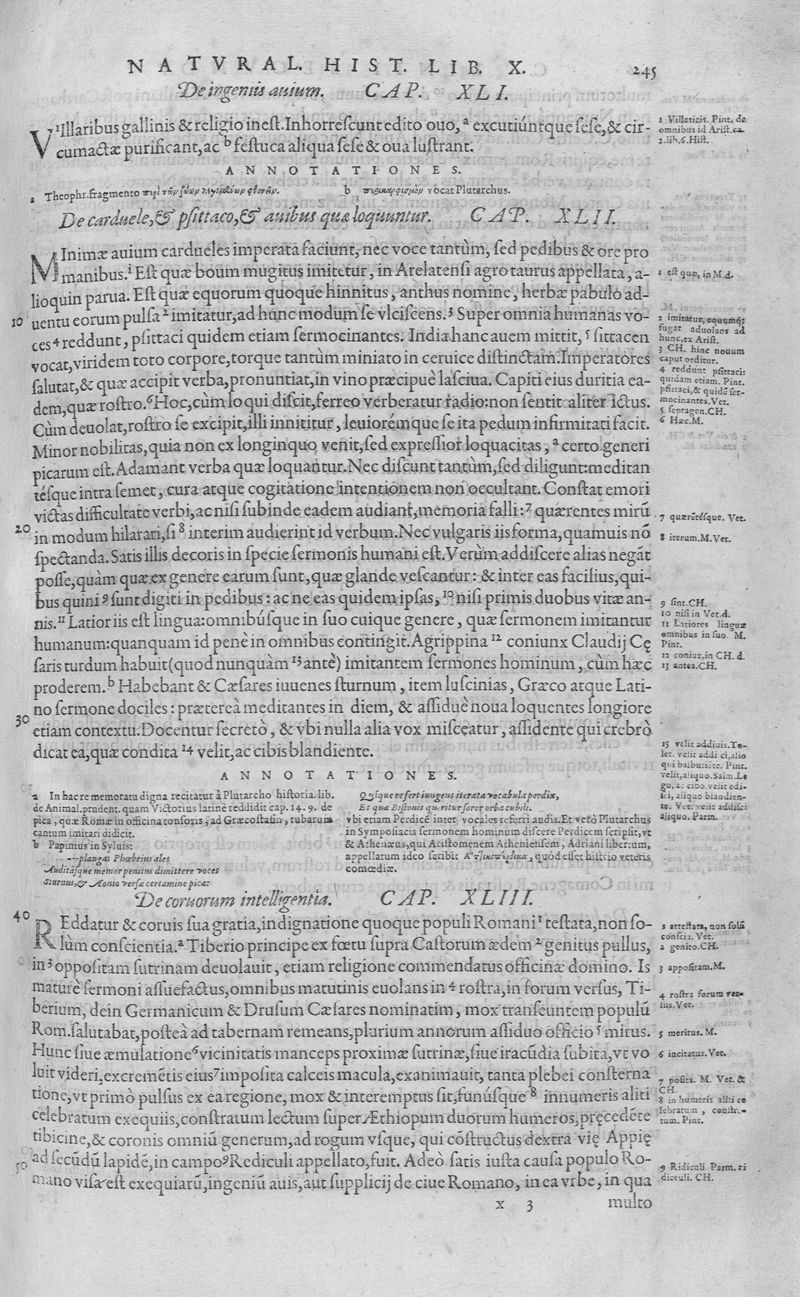 NATVRAL. HIST. LIB. X. 245
De ingeniis auium. CAP. XLI.
VIllaribus gallinis & religio ineſt. Inhorreſcunt edito ouo, a excutiúntque ſeſe, & cir-
cumactæ purificant, ac b feſtuca aliqua ſeſe & oua luſtrant.
ANNOTATIONES.
a Theophr. fragmento
b vocat Plutarchus.
De carduele, & pſittaco, & auibus quæ loquuntur. CAP. XLII.
MInimæ auium cardueles imperata faciunt, nec voce tantùm, ſed pedibus & ore pro
manibus. 1 Eſt quæ boum mugitus imitetur, in Arelatenſi agro taurus appellata, a-
lioquin parua. Eſt quæ equorum quoque hinnitus, anthus nomine, herbæ pabulo ad-
10 uentu eorum pulſa 2 imitatur, ad hunc modum ſe vlciſcens. 3 Super omnia humanas vo-
ces 4 reddunt, pſittaci quidem etiam ſermocinantes. India hanc auem mittit, 5 ſittacen
vocat, viridem toto corpore, torque tantùm miniato in ceruice diſtinctam. Imperatores
ſalutat, & quæ accipit verba, pronuntiat, in vino præcipuè laſciua. Capiti eius duritia ea-
dem, quæ roſtro. 6 Hoc, cùm loqui diſcit, ferreo verberatur radio: non ſentit aliter ictus.
Cùm deuolat, roſtro ſe excipit, illi innititur, leuiorémque ſe ita pedum infirmitati facit.
Minor nobilitas, quia non ex longinquo venit, ſed expreſſior loquacitas, a certo generi
picarum eſt. Adamant verba quæ loquantur. Nec diſcunt tantùm, ſed diligunt: meditan
téſque intra ſemet, cura atque cogitatione intentionem non occultant. Conſtat emori
victas difficultate verbi, ac niſi ſubinde eadem audiant, memoria falli: 7 quærentes mirũ
20 in modum hilarari, ſi 8 interim audierint id verbum. Nec vulgaris iis forma, quamuis nõ
ſpectanda. Satis illis decoris in ſpecie ſermonis humani eſt. Verùm addiſcere alias negāt
poſſe, quàm quæ ex genere earum ſunt, quæ glande veſcantur: & inter eas facilius, qui-
bus quini 9 ſunt digiti in pedibus: ac ne eas quidem ipſas, 10 niſi primis duobus vitæ an-
nis. 11 Latior iis eſt lingua: omnibúſque in ſuo cuique genere, quæ ſermonem imitantur
humanum: quanquam id penè in omnibus contingit. Agrippina 12 coniunx Claudij Cę
ſaris turdum habuit (quod nunquàm 13 antè) imitantem ſermones hominum, cùm hæc
proderem. b Habebant & Cæſares iuuenes ſturnum, item luſcinias, Græco atque Lati-
no ſermone dociles: præterea meditantes in diem, & aſſiduè noua loquentes longiore
30 etiam contextu. Docentur ſecretò, & vbi nulla alia vox miſceatur, aſſidente qui crebrò
dicat ea, quæ condita 14 velit, ac cibis blandiente.
ANNOTATIONES.
a In hac re memoratu digna recitatur à Plutarcho hiſtoria. lib.
de Animal. prudent. quam Victorius latinè reddidit cap. 14. 9. de
pica, quæ Romæ in officina tonſoris, ad Græcoſtaſin, tubarum
cantum imitari didicit.
b Papinius in Syluis:
--plangat Phœbeius ales
Auditáſque memor penitus dimittere voces
Sturnus, & Aonio verſæ certamine picæ:
Quíſque refert iungens iterata vocabula perdix,
Et quæ Biſtonio queritur ſoror orba cubili.
vbi etiam Perdicẽ inter vocales referri audis. Et verò Plutarchus
in Sympoſiacis ſermonem hominum diſcere Perdicem ſcripſit, vt
& Athenæus, qui Ariſtomenem Athenienſem, Adriani libertum,
appellatum ideo ſcribit quòd eſſet hiſtrio veteris
comœdiæ.
De coruorum intelligentia. CAP. XLIII.
40 REddatur & coruis ſua gratia, indignatione quoque populi Romani 1 teſtata, non ſo-
lùm conſcientia. a Tiberio principe ex fœtu ſupra Caſtorum ædem 2 genitus pullus,
in 3 oppoſitam ſutrinam deuolauit, etiam religione commendatus officinæ domino. Is
maturè ſermoni aſſuefactus, omnibus matutinis euolans in 4 roſtra, in forum verſus, Ti-
berium, dein Germanicum & Druſum Cæſares nominatim, mox tranſeuntem populũ
Rom. ſalutabat, poſteà ad tabernam remeans, plurium annorum aſſiduo officio 5 mirus.
Hunc ſiue æmulatione 6 vicinitatis manceps proximæ ſutrinæ, ſiue iracũdia ſubita, vt vo
luit videri, excremẽtis eius 7 impoſita calceis macula, exanimauit, tanta plebei conſterna
tione, vt primò pulſus ex ea regione, mox & interemptus ſit, funúſque 8 innumeris aliti
celebratum exequiis, conſtratum lectum ſuper Æthiopum duorum humeros, pręcedẽte
tibicine, & coronis omniũ generum, ad rogum vſque, qui cõſtructus dextra vię Appię
50 ad ſecũdũ lapidẽ, in campo 9 Rediculi appellato, fuit. Adeò ſatis iuſta cauſa populo Ro-
mano viſa eſt exequiarũ, ingeniũ auis, aut ſupplicij de ciue Romano, in ea vrbe, in qua
x 3 multo
1 Villaticis. Pint. de
omnibus id Ariſt. ca.
2. lib. 6. Hiſt.
1 eſt quæ, in M.d.
2 imitatur, equumq;
fugat aduolans ad
hunc, ex Ariſt.
3 CH. hinc nouum
caput orditur.
4 reddunt pſittaci:
quidam etiam. Pint.
pſittaci, & quidẽ ſer-
mocinantes. Vet.
5 ſeptagen. CH.
6 Hæc. M.
7 quærẽtéſque. Vet.
8 iterum. M. Vet.
9 ſint. CH.
10 niſi in Vet. d.
11 Latiores linguæ
omnibus in ſuo. M.
Pint.
12 coniux, in CH. d.
13 antea. CH.
15 velit addiuis. To-
let. velit addi ci, alio
qui balbutire. Pint.
velit, aliquo. Salm. Le
go, ac cibo. velit edi-
ſci, aliquo blandien-
te. Vet. velit addiſci
aliquo. Parm.
1 atteſtata, non ſolũ
conſcia. Vet.
2 genito. CH.
3 appoſitam. M.
4 roſtra forum ver-
ſus. Vet.
5 meritus. M.
6 incitatus. Vet.
7 poſita. M. Vet. &
CH.
8 in humeris aliti ce
lebratum, conſtr.-
tum. Pint.
9 Ridiculi Parm. ri
diculi. CH.